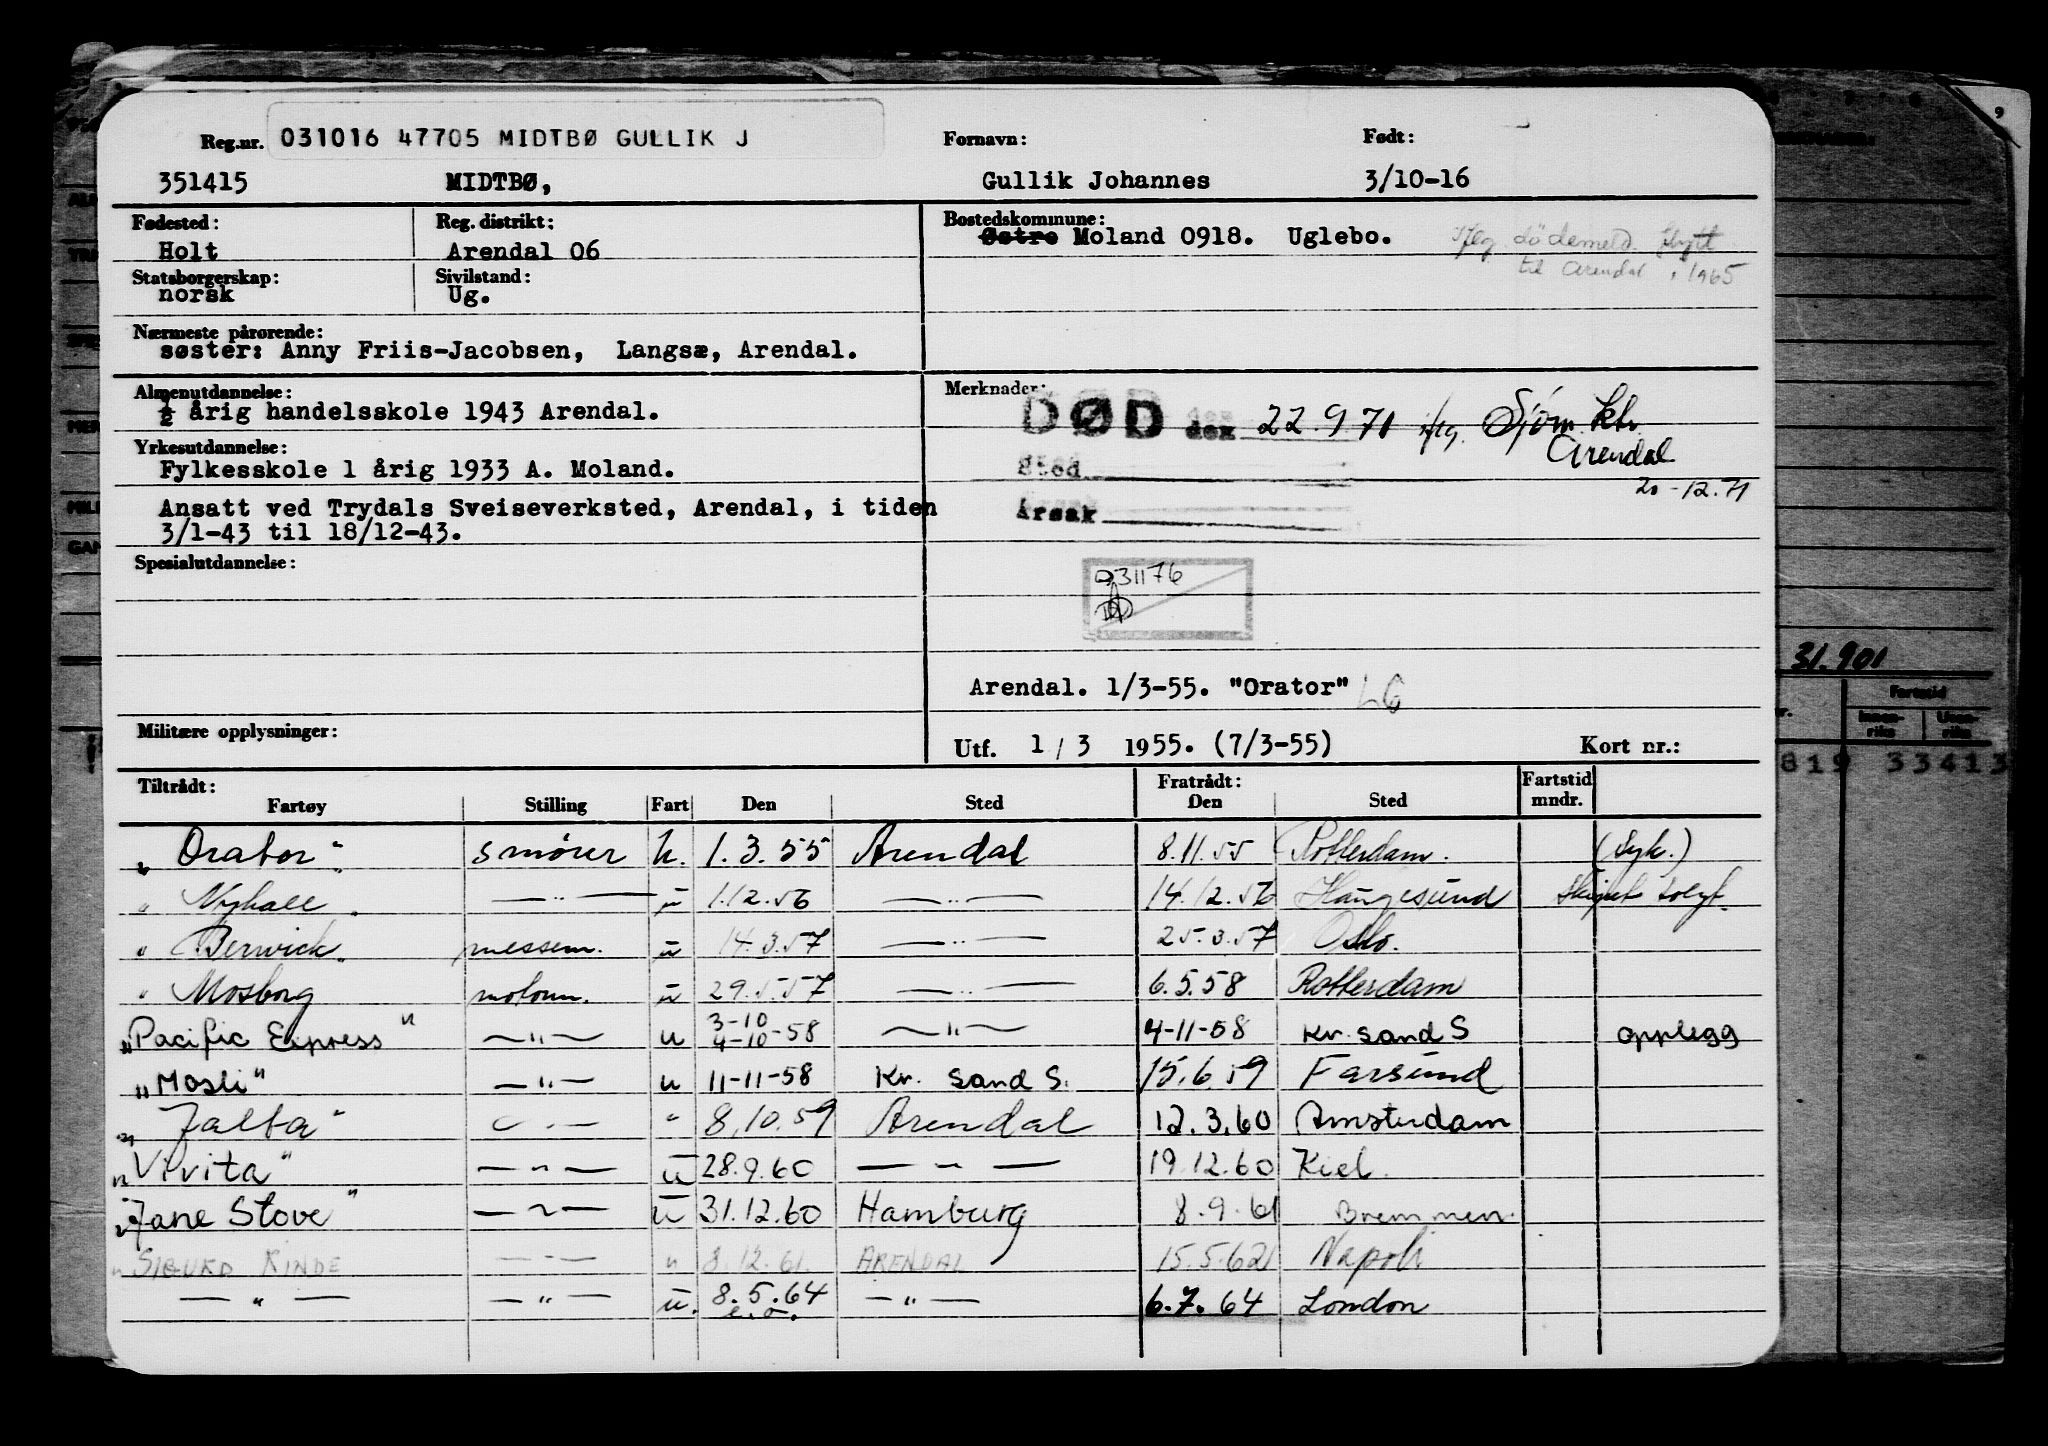 Reg.nr. 031016 47705 MIDTBØ GULLIK J Fornavn: Født:
351415 MIDTBØ, Gullik Johannes 3/10-16
Fødested: Reg. distrikt: Bostedskommune:
Holt Arendal 06 Østre Moland 0918. Uglebo. Iflg. dødsmeld. flytt
til Arendal, 1965
Statsborgerskap: Sivilstand:
norsk Ug.
Nærmeste pårørende:
søster: Anny Friis-Jacobsen, Langsæ, Arendal.
Almenutdannelse: Merknader:
½ årig handelsskole 1943 Arendal. DØD den 22.9.71 iflg. Sjøm ktr.
Arendal
Yrkesutdannelse:
Fylkesskole 1 årig 1933 A. Moland. Sted
20-12.71
Ansatt ved Trydals Sveiseverksted, Arendal, i tiden Årsak
3/1-43 til 18/12-43.
Spesialutdannelse:
031176
Arendal. 1/3-55. "Orator" LG
Militære opplysninger: Utf. 1/3 1955. (7/3-55) Kort nr.:
Tiltrådt: Fratrådt: Fartstid
Fartøy Stilling Fart Den Sted Den Sted mndr.
"Orator" smører u. 1.3.55 Arendal 8.11.55 Rotterdam. (Syk.)
" Nyhall " —"— u 1.12.56 —"— 14.12.56 Haugesund Skipet solgt.
" Berwick " messem. u 14.3.57 —"— 25.3.57 Oslo.
" Mosborg motorm. u 29.5.57 —"— 6.5.58 Rotterdam
"Pacific Express" —"— u 3-10 4-10-58 —"— 4-11-58 Kr. sand S opplegg
"Mosli" —"— u 11-11-58 Kr. sand S. 15.6.59 Farsund
"Jalta" —"— " 8.10.59 Arendal 12.3.60 Amsterdam
"Vivita" —"— u 28.9.60 —"— 19.12.60 Kiel.
"Jane Stove" —"— u 31.12.60 Hamburg 8.9.61 Bremmen.
" SIGURD RINDE —"— " 8.12.61. ARENDAL 15.5.62 Napoli
—"— —"— u. 8.5.64 —"— 6.7.64 London
e.o.
31.901
Fartstid
Innen-riks Uten-riks
819 33413